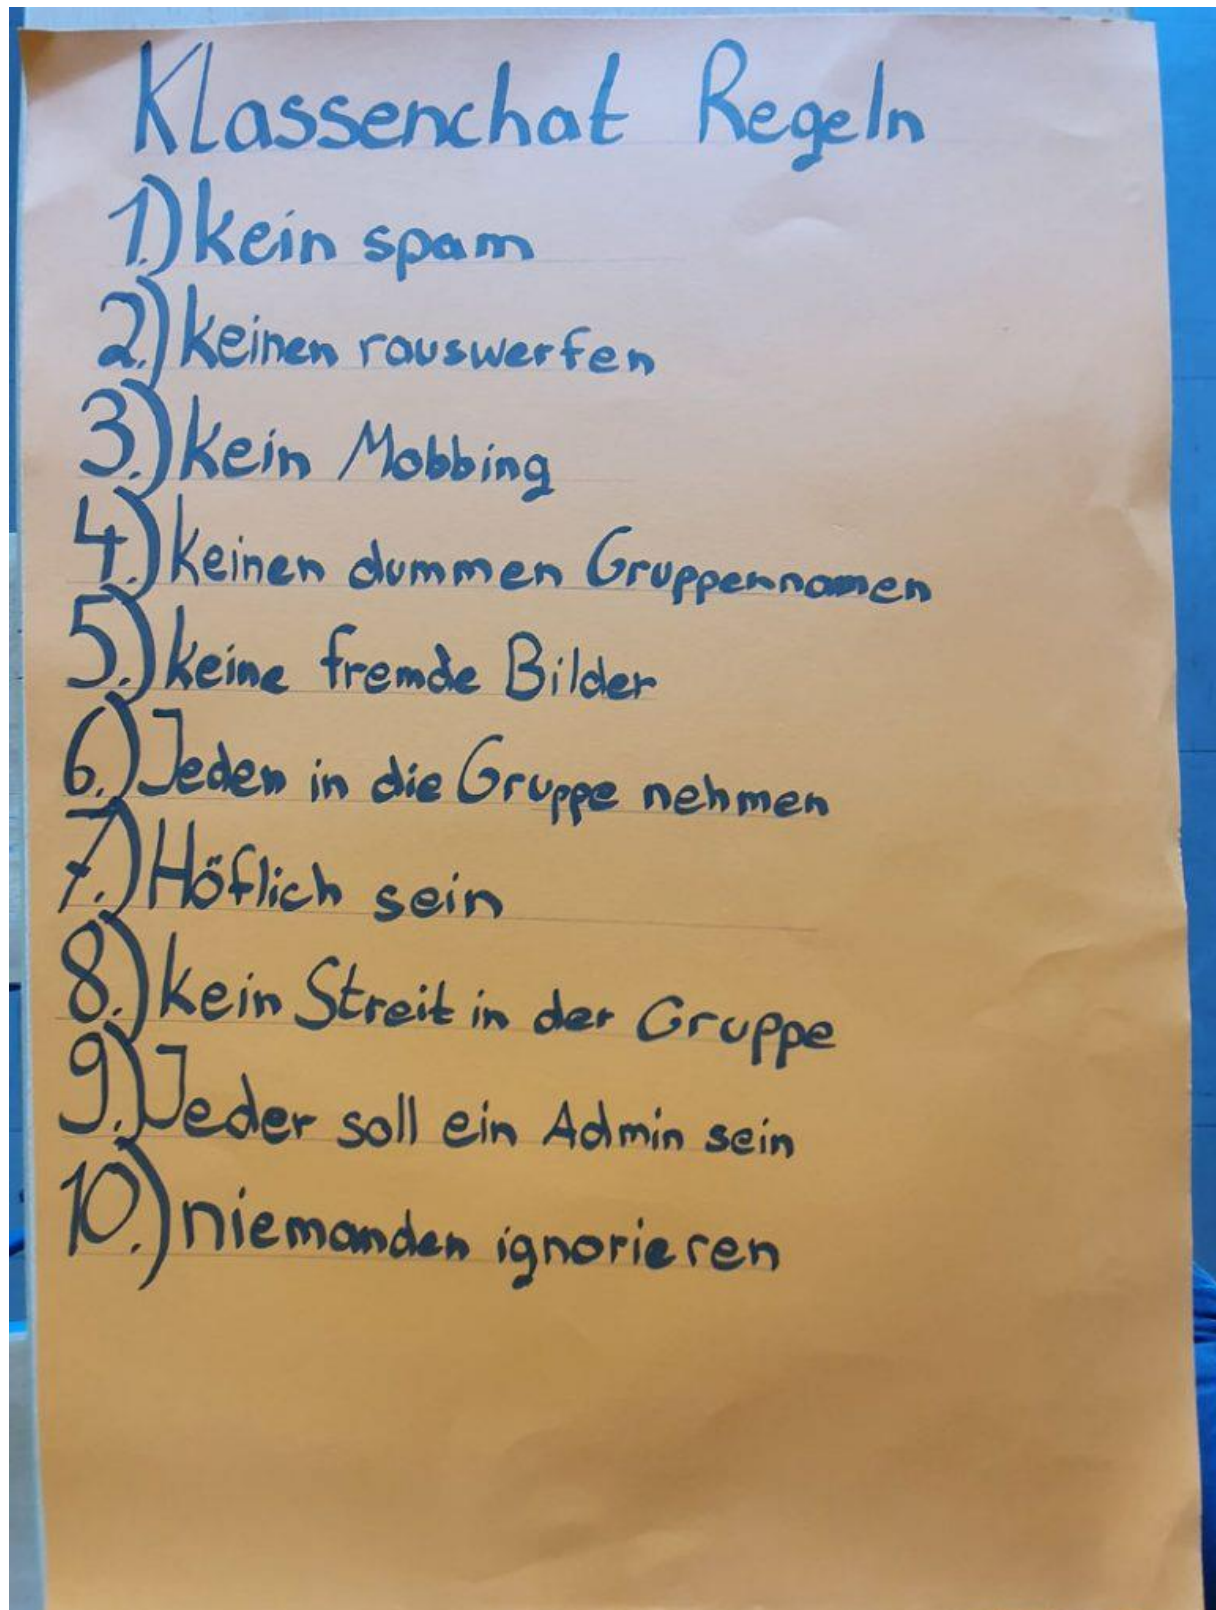 Klassenchat Regeln
1.) kein spam
2.) keinen rauswerfen
3.) kein Mobbing
4.) keinen dummen Gruppennamen
5.) keine fremde Bilder
6.) Jeden in die Gruppe nehmen
7.) Höflich sein
8.) kein Streit in der Gruppe
9.) Jeder soll ein Admin sein
10.) niemanden ignorieren